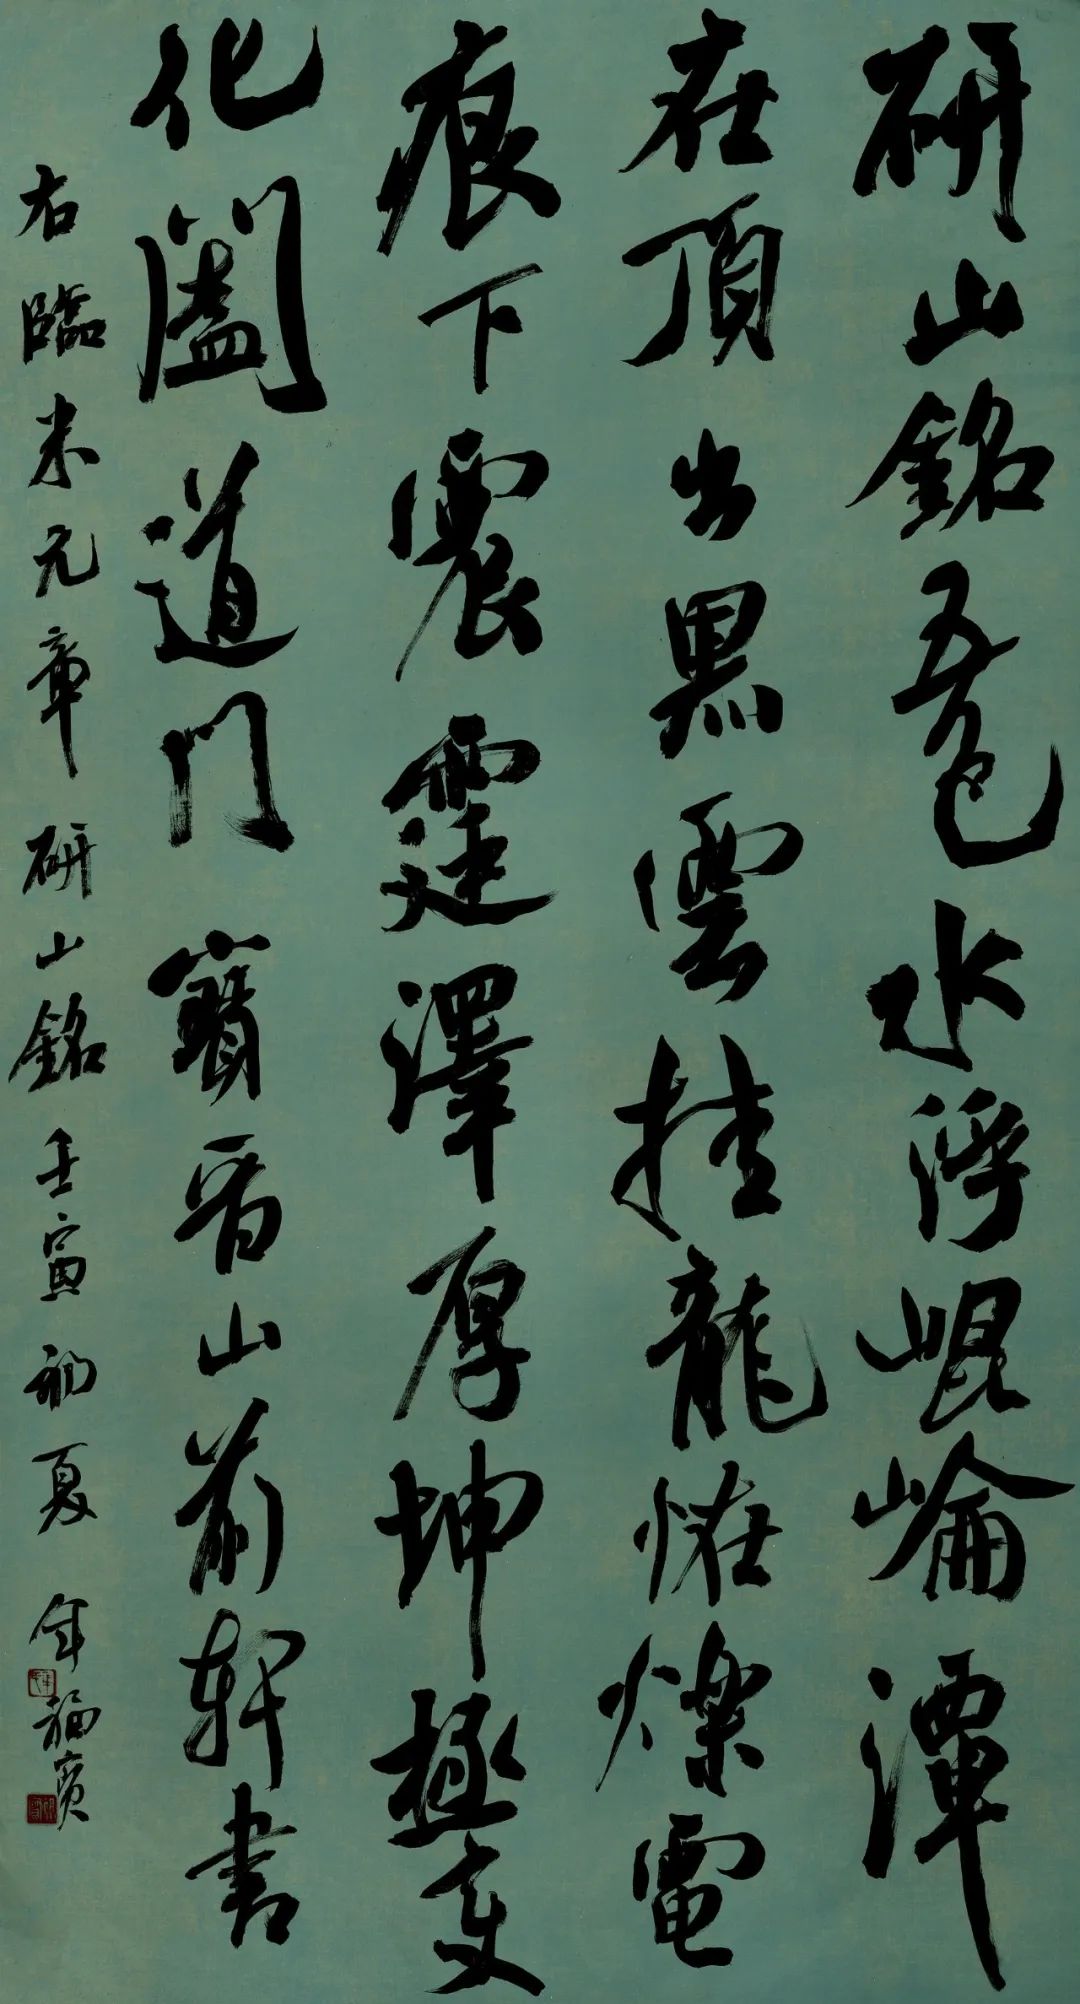 研山銘五色水浮崐崘潭
在頂出黑雲挂龍怪爍電
痕下震霆澤厚坤極变
化闔道門寳晉山前軒書
右臨米元章研山銘壬寅初夏年福賓